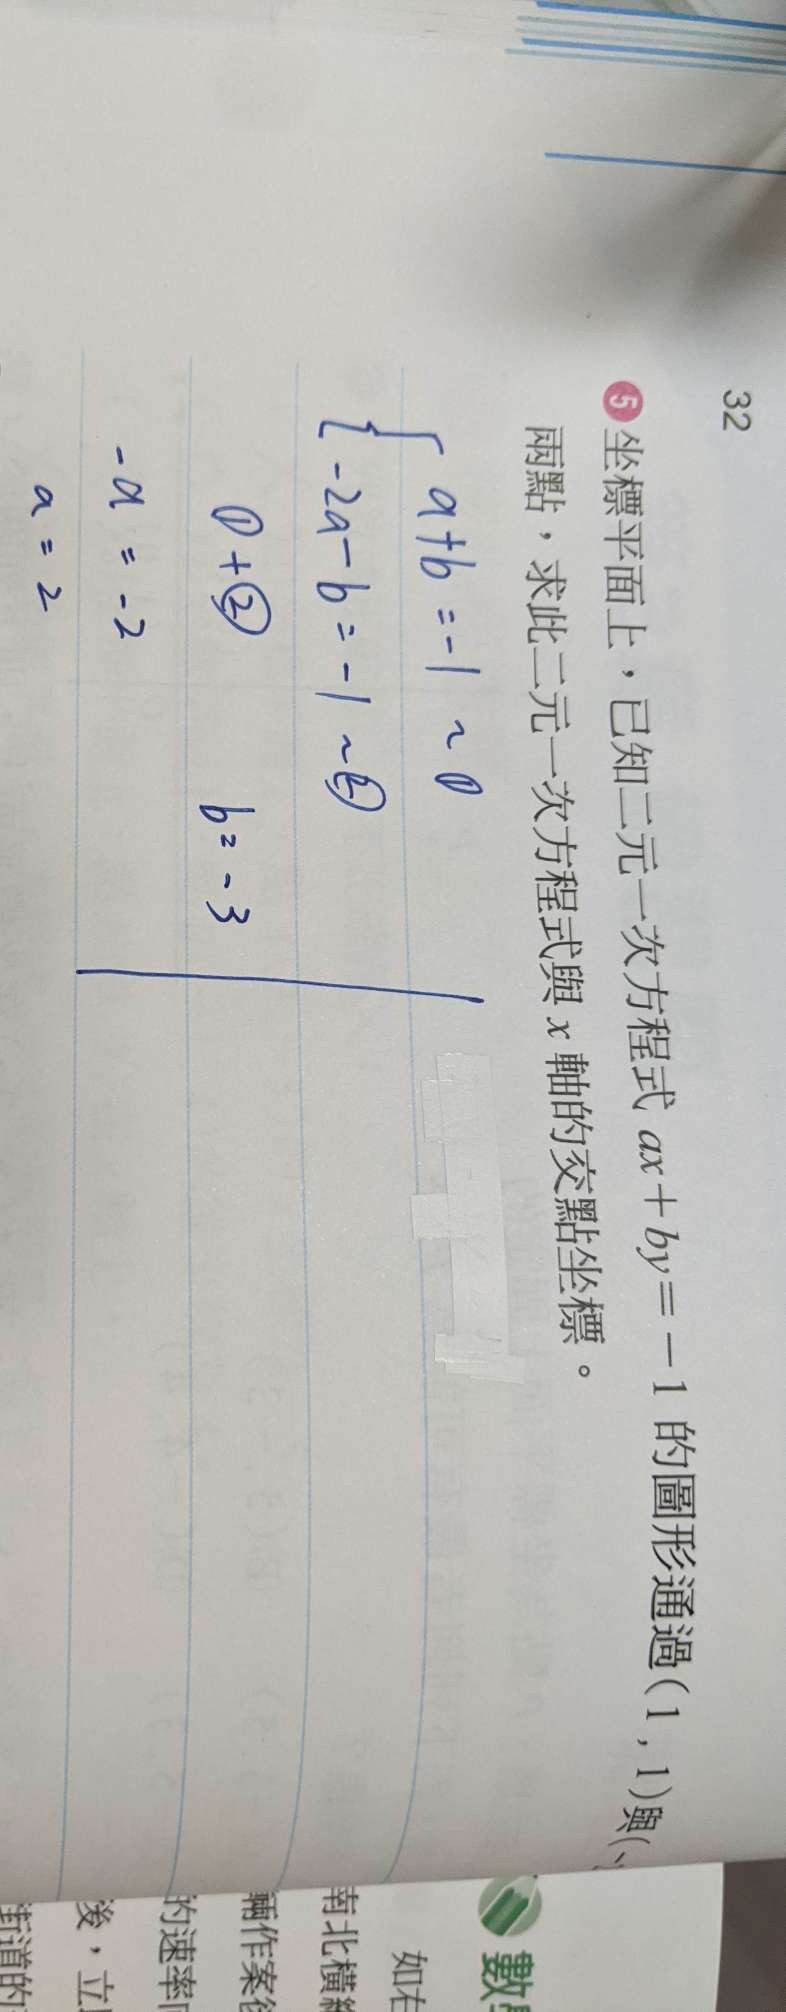 32
5 坐標平面上，已知二元一次方程式 ax＋by＝－1 的圖形通過(1 , 1)與(
兩點，求此二元一次方程式與 x 軸的交點坐標。
a+b=-1 ~ ①
-2a-b=-1 ~ ②
①+② b=-3
-a=-2
a=2
數
如右
南北橫
輛作案
的速率
後，立
街道的